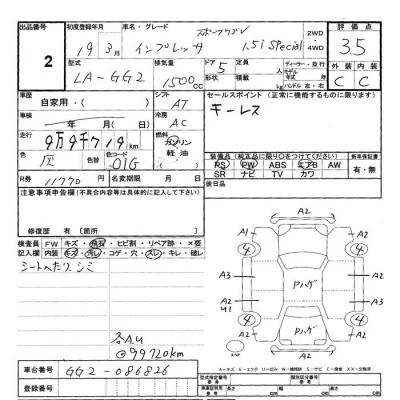 出品番号
2
初度登録年月
19年3月
車名・グレード
スポーツワゴン
インプレッサ 1.5i Special
2WD
4WD
評価点
3.5
型式
LA-GG2
排気量
1500cc
ドア
5
形状
定員
積載
kg
ディーラー・並行
モデル年式
ハンドル 左・右
外装
内装
C
C
車歴
自家用・( )
シフト
AT
車検
年 月( )
冷房
AC
セールスポイント(正常に機能するものに限ります)
キーレス
走行
9万9千719km
燃料
ガソリン
軽油
色
灰
色替
色コード
01G
装備品(純正品に限り○をつけてください)
新車保証書
PS PW ABS エアB AW
SR ナビ TV カワ
有・無
R券
11770円
名変期限
月 日
後日品
注意事項申告欄(不具合内容は具体的に記入して下さい)
修復歴 有〔箇所
検査員記入欄
FW キズ・飛石・ヒビ割・リペア跡・×要
内装 キズ・汚レ・コゲ・穴・スレ・キレ・破レ
シートへたり、シミ
@99720km
車台番号
GG2-086826
登録番号
A2
A1
A2
4
4
A3
A2
U1
Pハゲ
Pハゲ
A3
A2
4
4
A2
A2
スペア
A2
型式指定番号
参考
類別区分番号
参考
車両証明用
参考
長さ
cm
幅
cm
高さ
cm